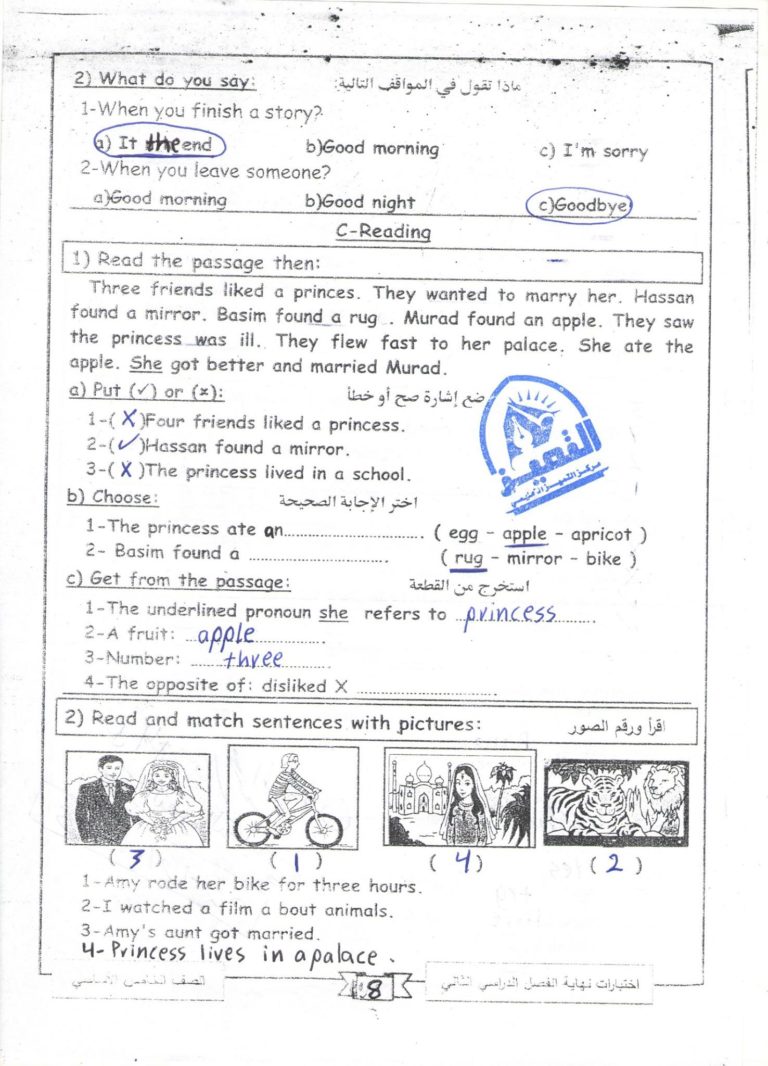 2) What do you say: ماذا تقول في المواقف التالية:
1-When you finish a story?
a) It the end b)Good morning c) I'm sorry
2-When you leave someone?
a)Good morning b)Good night c)Goodbye
C-Reading
1) Read the passage then:
Three friends liked a princes. They wanted to marry her. Hassan
found a mirror. Basim found a rug . Murad found an apple. They saw
the princess was ill. They flew fast to her palace. She ate the
apple. She got better and married Murad.
a) Put (✓) or (×): ضع إشارة صح أو خطأ
1-( X )Four friends liked a princess.
2-( ✓ )Hassan found a mirror.
3-( X )The princess lived in a school.
b) Choose: اختر الإجابة الصحيحة
1-The princess ate an.............................. ( egg - apple - apricot )
2- Basim found a .............................. ( rug - mirror - bike )
c) Get from the passage: استخرج من القطعة
1-The underlined pronoun she refers to princess
2-A fruit: apple
3-Number: three
4-The opposite of: disliked X ..............................
2) Read and match sentences with pictures: اقرأ ورقم الصور
( 3 ) ( 1 ) ( 4 ) ( 2 )
1-Amy rode her bike for three hours.
2-I watched a film a bout animals.
3-Amy's aunt got married.
4- Princess lives in a palace .
الصف الخامس الأساسي 8 اختبارات نهاية الفصل الدراسي الثاني